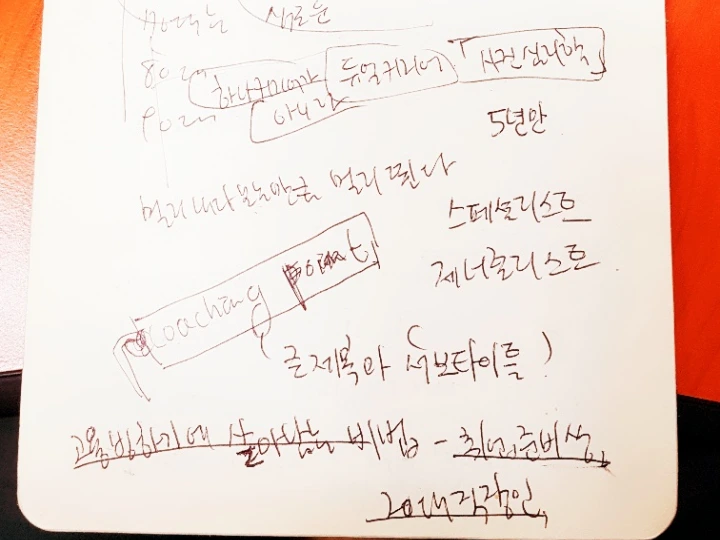 새로운
80대
90대 하나커리어가 듀얼커리어 「사건심리학」
아니라
5년안
멀리 내다보는만큼 멀리 뛴다
스페셜리스트
제너럴리스트
coaching point
(큰제목아 서브타이틀)
고용빙하기에 살아남는 비법 - 취업준비생,
20대직장인,